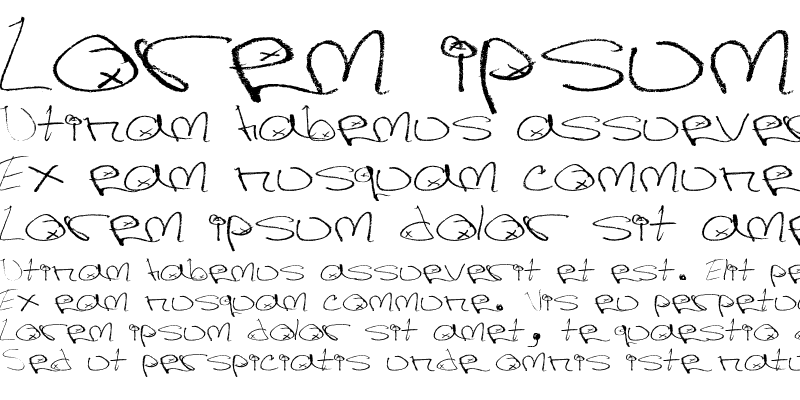 Lorem ipsum
Utinam habemus assuever
Ex eam nusquam commune
Lorem ipsum dolor sit ame
Utinam habemus assueverit et est. Elit pe
Ex eam nusquam commune. Vis eu perpetu
Lorem ipsum dolor sit amet, te quaestio
Sed ut perspiciatis unde omnis iste natu